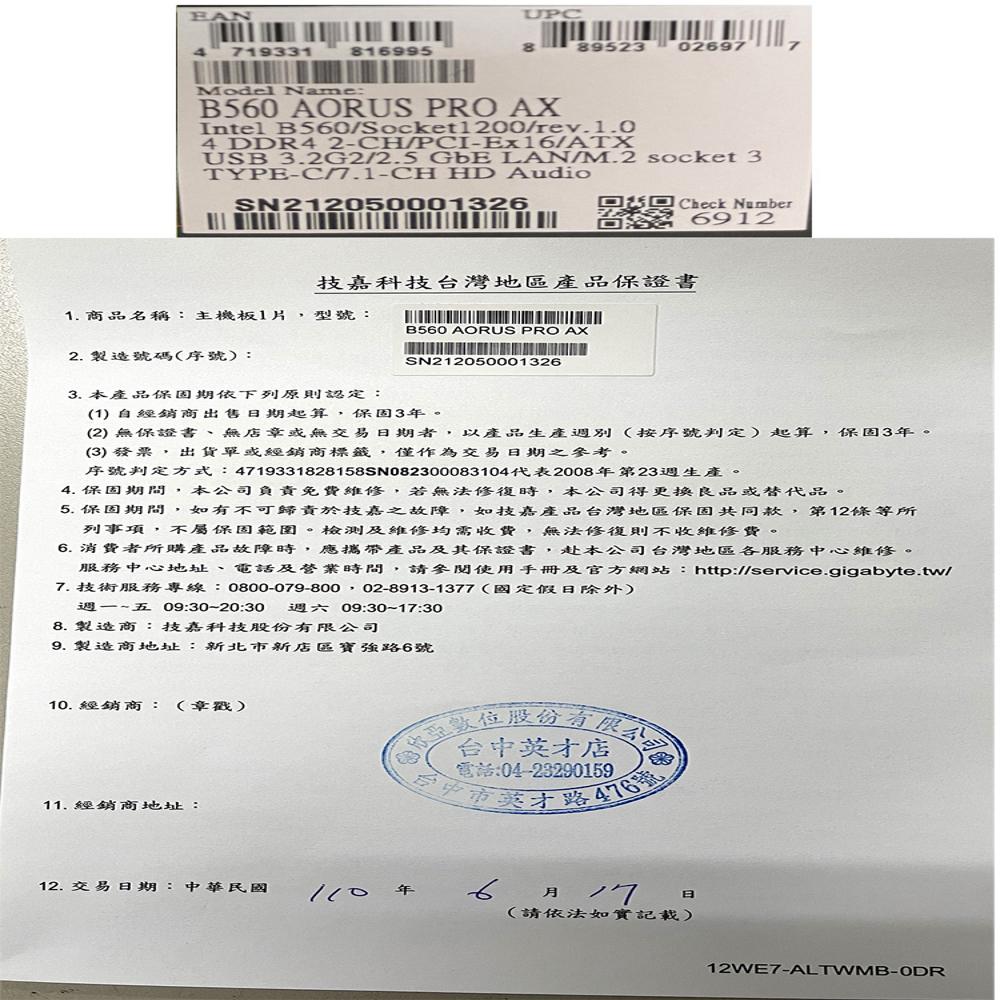 EAN
UPC
4 719331 816995
8 89523 02697 7
Model Name:
B560 AORUS PRO AX
Intel B560/Socket1200/rev.1.0
4 DDR4 2-CH/PCI-Ex16/ATX
USB 3.2G2/2.5 GbE LAN/M.2 socket 3
TYPE-C/7.1-CH HD Audio
SN212050001326
Check Number
6912
技嘉科技台灣地區產品保證書
1. 商品名稱：主機板1片，型號：
B560 AORUS PRO AX
2. 製造號碼(序號)：
SN212050001326
3. 本產品保固期依下列原則認定：
(1) 自經銷商出售日期起算，保固3年。
(2) 無保證書、無店章或無交易日期者，以產品生產週別（按序號判定）起算，保固3年。
(3) 發票，出貨單或經銷商標籤，僅作為交易日期之參考。
序號判定方式：4719331828158SN082300083104代表2008年第23週生產。
4. 保固期間，本公司負責免費維修，若無法修復時，本公司得更換良品或替代品。
5. 保固期間，如有不可歸責於技嘉之故障，如技嘉產品台灣地區保固共同款，第12條等所
列事項，不屬保固範圍。檢測及維修均需收費，無法修復則不收維修費。
6. 消費者所購產品故障時，應攜帶產品及其保證書，赴本公司台灣地區各服務中心維修。
服務中心地址、電話及營業時間，請參閱使用手冊及官方網站：http://service.gigabyte.tw/
7. 技術服務專線：0800-079-800，02-8913-1377 (國定假日除外)
週一~五 09:30~20:30 週六 09:30~17:30
8. 製造商：技嘉科技股份有限公司
9. 製造商地址：新北市新店區寶強路6號
10. 經銷商：（章戳）
欣亞數位股份有限公司
台中英才店
電話:04-23290159
台中市英才路476號
11. 經銷商地址：
12. 交易日期：中華民國 110 年 6 月 17 日
（請依法如實記載）
12WE7-ALTWMB-0DR